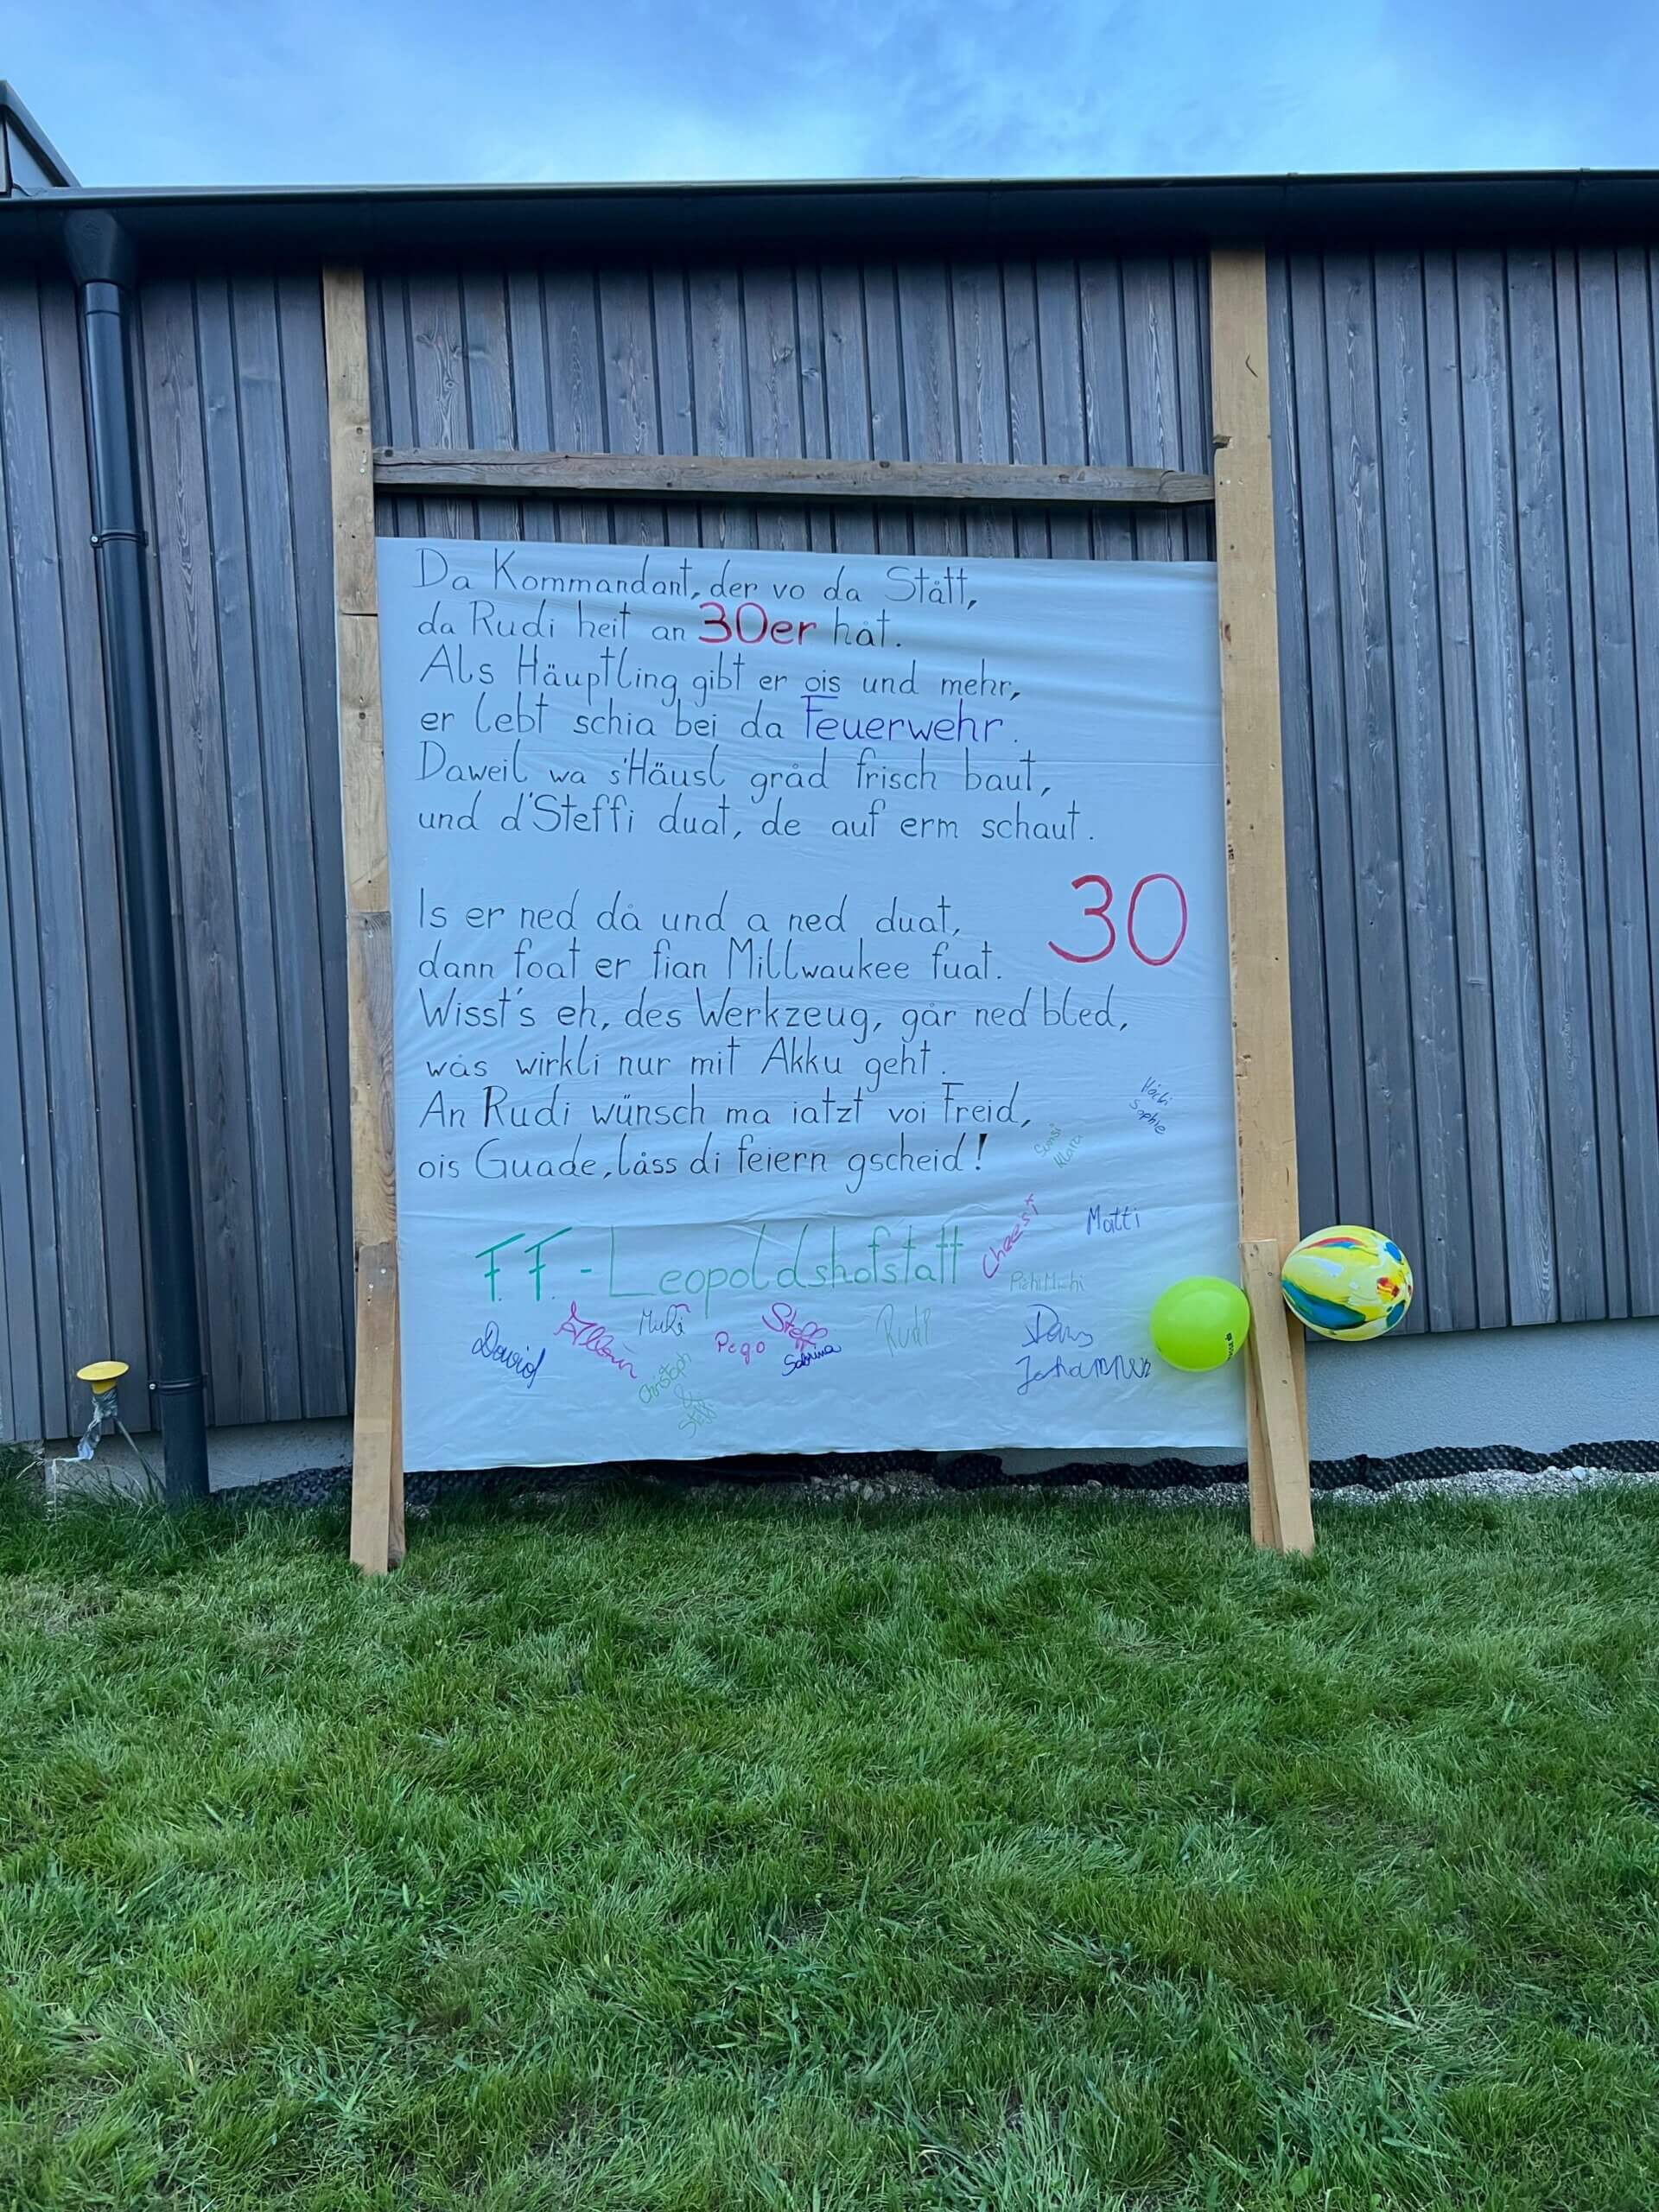 Da Kommandant, der vo da Stått,
da Rudi heit an 30er håt.
Als Häuptling gibt er ois und mehr,
er lebt schia bei da Feuerwehr.
Daweil wa s'Häusl gråd frisch baut,
und d'Steffi duat, de auf erm schaut.
Is er ned då und a ned duat,
dann foat er fian Millwaukee fuat.
30
Wisst's eh, des Werkzeug, går ned bled,
wås wirkli nur mit Akku geht.
An Rudi wünsch ma iatzt voi Freid,
ois Guade, låss di feiern gscheid!
Sophie
Klara
F.F.-Leopoldshofstatt
Cheesi
Matti
David
Muki
Pego
Steffi
Sabrina
Rudi
Christoph
&
Steffi
Johannes